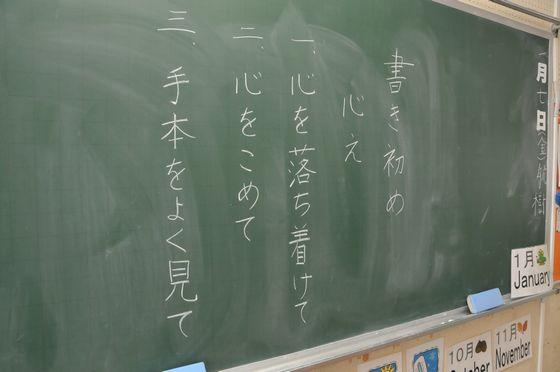 一月七日(金)
書き初め
心え
一、心を落ち着けて
二、心をこめて
三、手本をよく見て
1月
January
10月
October
11月
November